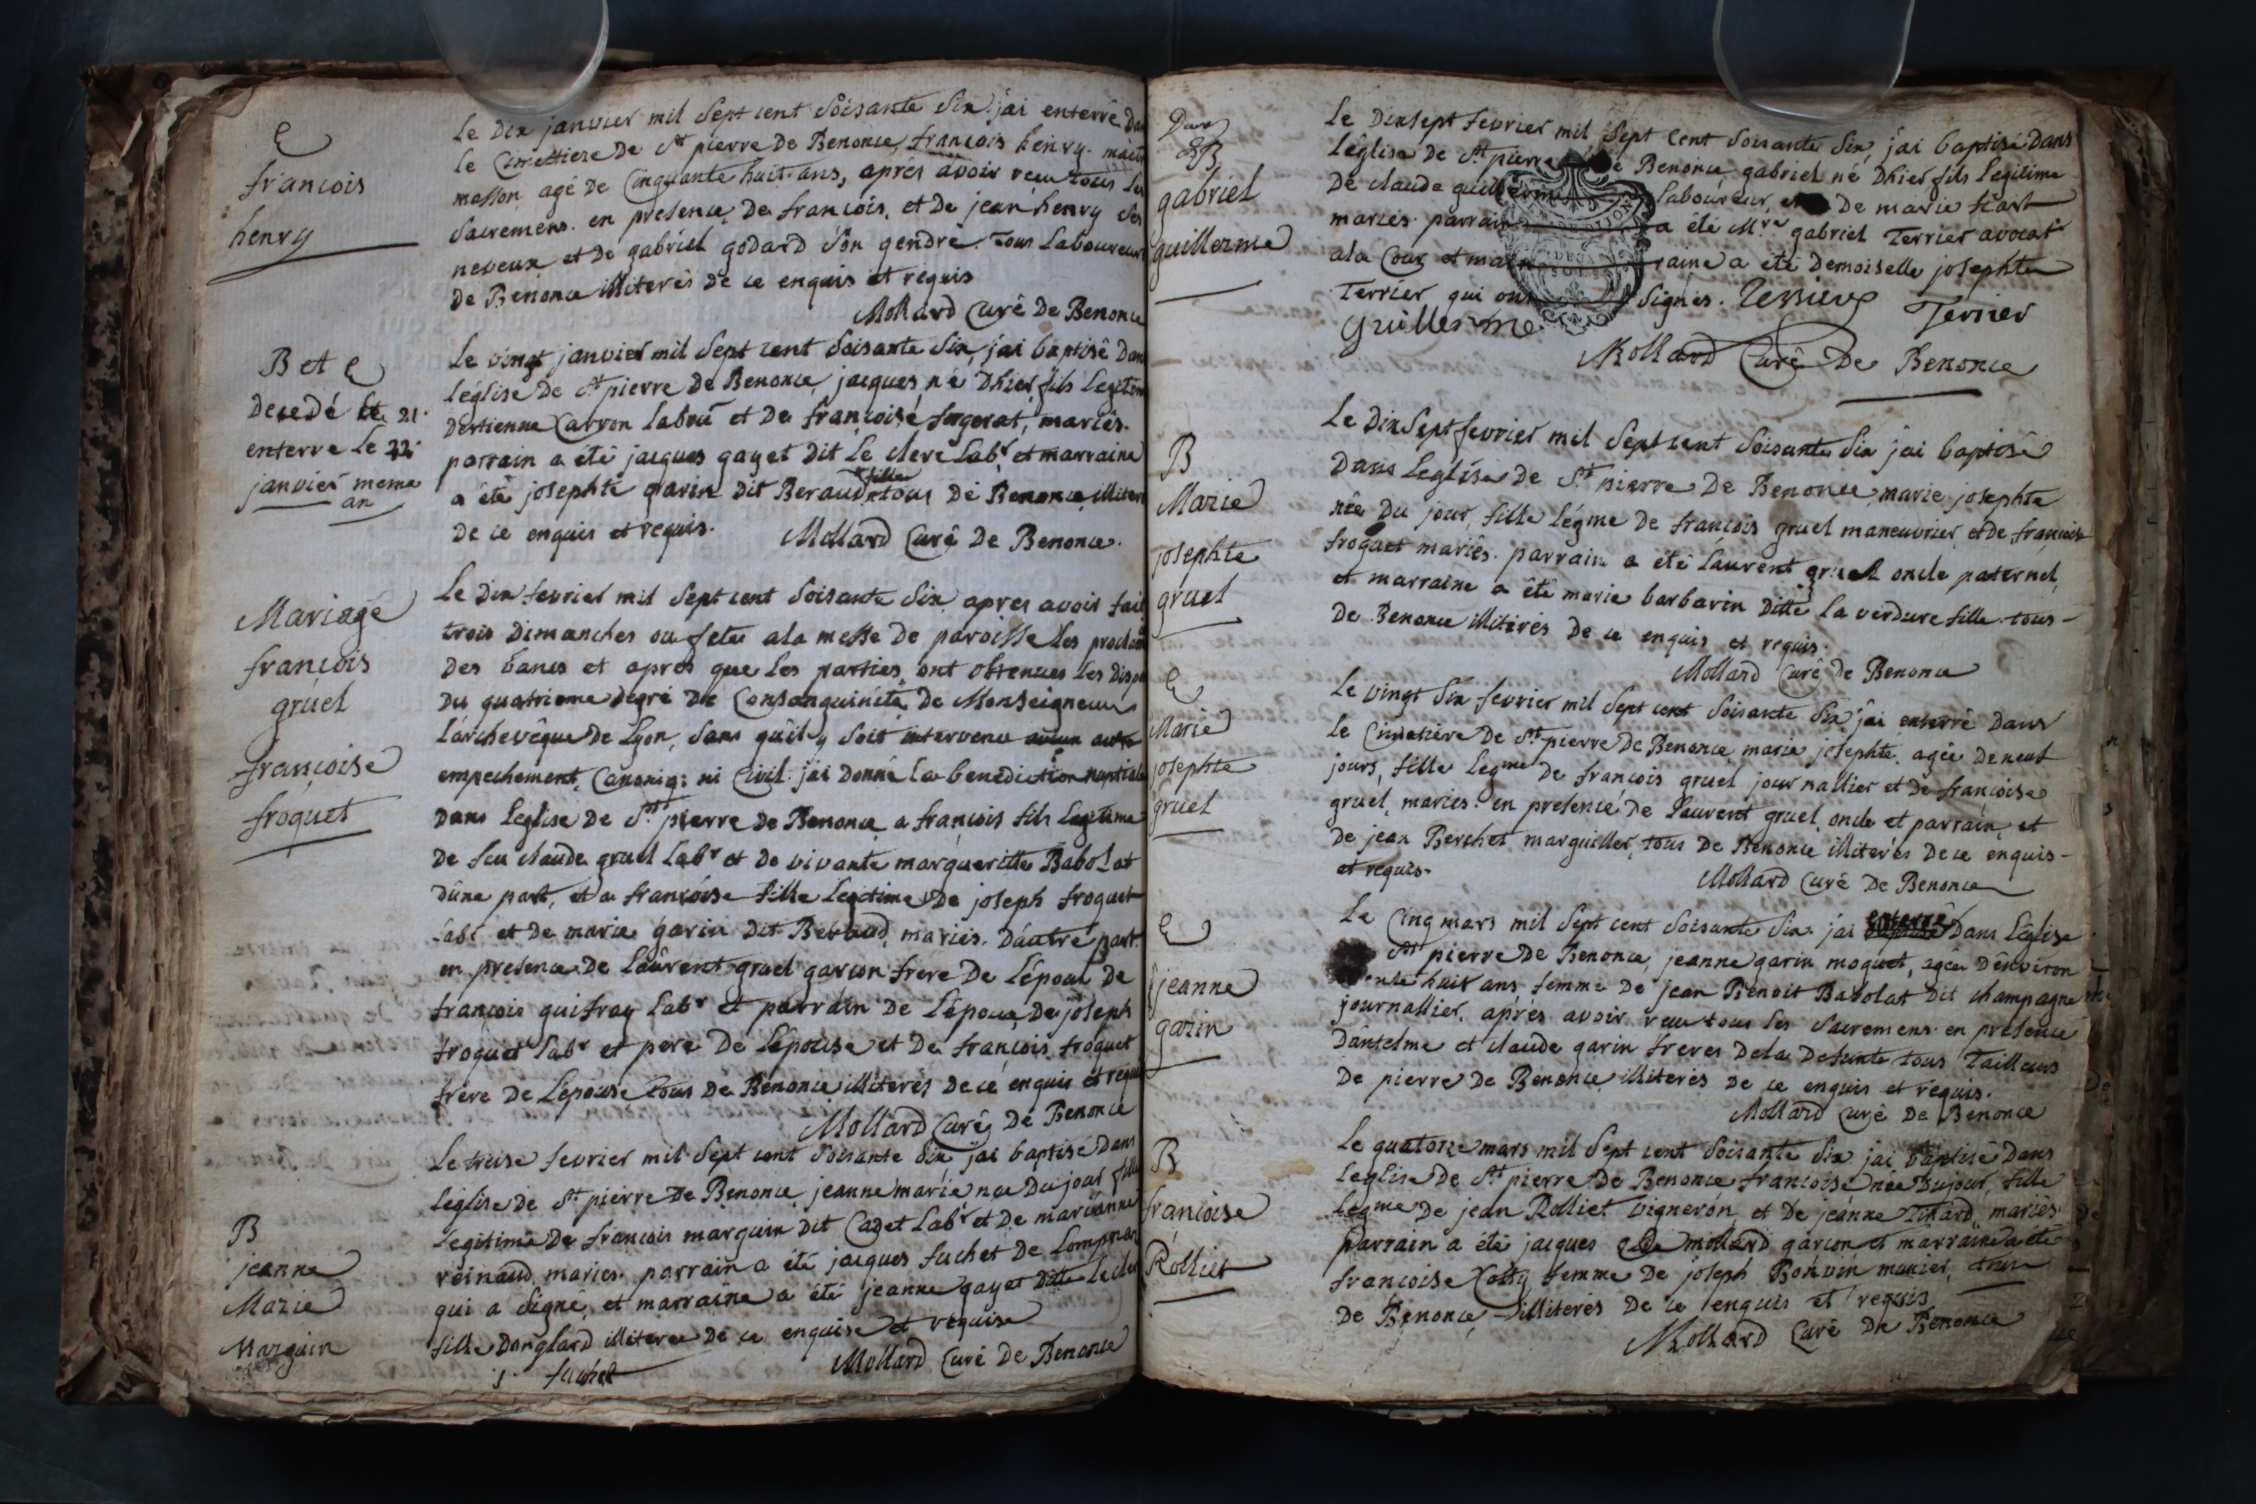 e
francois
henry
Le dix janvier mil sept cent soisante six j'ai enterré Dans
le Cimettiere de St pierre de Benonce, francois henry maitre
masson agé de Cinquante huit ans, aprés avoir reçu tous les
sacremens. en presence de francois, et de jean henry ses
neveux et de gabriel godard son gendre. tous laboureurs
de Benonce illiterés de ce enquis et requis
Mollard Curé de Benonce
B et e
decedé le 21.
enterre le 22.
janvier meme
an
Le vingt janvier mil sept cent soisante six, j'ai baptisé Dans
léglise de St pierre de Benonce, jacques né D'hier, fils legitime
d'estienne Carron labou et de françoise forgerat, mariés.
parrain a été jacques gayet dit le clerc Labr et marraine
a été josephte garin dit Beraud fille tous de Benonce, illiterés
de ce enquis et requis.
Mollard Curé De Benonce.
Mariage
francois
gruel
francoise
froquet
Le Dix fevrier mil sept cent soisante six apres avoir fait
trois Dimanches ou fetes a la messe de paroisse les prochain
Des bancs et apres que les parties, ont obtenues les disp
Du quatrieme degré de Consanguinité de Monseigneur
l'archevêque de Lyon, sans qu'il y soit intervenu aucun autre
empechement, Canoniq: ni Civil. j'ai Donné la benediction nuptiale
Dans leglise de St pierre de Benonce a francois fils legitime
de feu claude gruel Labr et de vivante margueritte Babolat
d'une part, et a françoise fille legitime De joseph froquet
labr et de marie garin dit Beraud, mariés. D'autre part.
en presence de Laurent gruel garçon frere De l'époux de
francois guifray Labr et parrain de L'époux, De joseph
froquet labr et pere De l'épouse et De francois froquet
frere de L'épouse tous de Benonce illiterés de ce enquis et requis
Mollard Curé De Benonce
B
jeanne
Marie
Marguin
Le treise fevrier mil sept cent soisante six j'ai baptisé Dans
léglise de St pierre de Benonce, jeanne marie née Du jour fille
legitime de francois marguin dit Cadet Labr et De marianne
reinaud, mariés. parrain a été jacques fuchet de Lompnas
qui a signé, et marraine a été jeanne gayet ditte le clerc
fille D'onglard illiterée de ce enquise et requise
j. fuchet
Mollard Curé de Benonce
B
gabriel
guillerme
Le Dixsept fevrier mil sept cent soisante six, j'ai baptisé Dans
l'église de St pierre de Benonce gabriel né D'hier fils legitime
De claude guillerme laboureur, et De marie
mariés. parrain a été Mre gabriel Terrier avocat
a la Cour et marraine a été Demoiselle josephte
Terrier qui ont signés. Terrier
Terrier
Guillerme
Mollard Curé De Benonce
B
Marie
josephte
gruel
Le Dix Sept fevrier mil sept cent soisante six j'ai baptisé
Dans Leglise de St pierre De Benonce marie josephte
née Du jour, fille légme de françois gruel maneuvrier et de francoise
froquet mariés. parrain a été Laurent gruel oncle paternel,
et marraine a été marie barbarin Ditte la verdure fille tous
de Benonce illiterés De ce enquis et requis.
Mollard Curé de Benonce
e
Marie
josephte
gruel
Le vingt six fevrier mil sept cent soisante six j'ai enterré Dans
le Cimetière de St pierre de Benonce, marie josephte, agée de neuf
jours, fille legme de francois gruel journallier et de francoise
gruel, mariés. en presence de Laurent gruel, oncle et parrain, et
de jean Berchet marguiller, tous De Benonce illiterés de ce enquis
et requis.
Mollard Curé De Benonce
e
jeanne
garin
Le Cinq mars mil sept cent soisante six j'ai enterré Dans l'église
St pierre De Benonce, jeanne garin moquet, agée D'environ
huit ans, femme de jean Benoit Babolat Dit champagne
journallier, aprés avoir reçu tous les sacremens en presence
D'antelme et claude garin freres De la Defunte tous Tailleurs
De pierre De Benonce illiterés de ce enquis et requis.
Mollard Curé De Benonce
B
francoise
Rolliet
Le quatorze mars mil sept cent soisante six j'ai baptisé Dans
leglise De St pierre De Benonce francoise née Du jour, fille
legme de jean Rolliet vigneron et De jeanne Tinard, mariés
parrain a été jacques mollard garçon et marraine a été
francoise Cotty femme de joseph Bonvin munier, tous
De Benonce illiterés De ce enquis et requis
Mollard Curé De Benonce